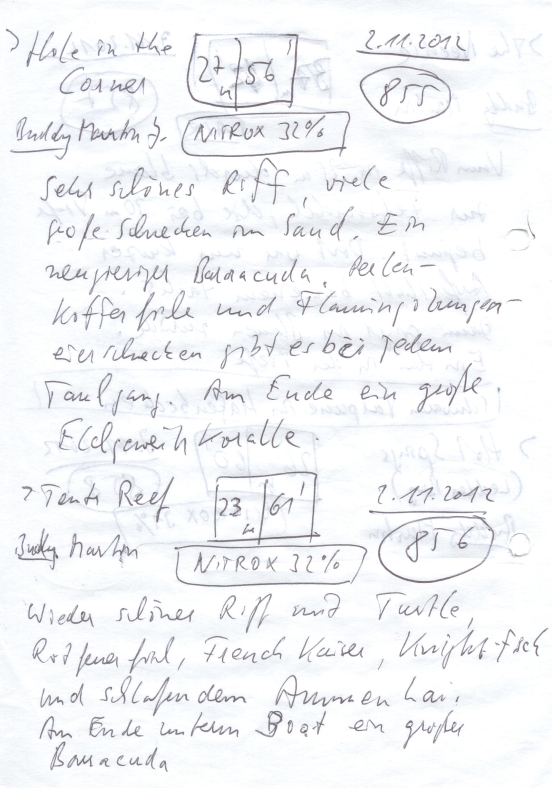 > Hole in the
Corner
27m 56'
2.11.2012
855
Buddy Martin J.
NITROX 32%
Sehr schönes Riff, viele
große Schnecken im Sand. Ein
neugieriger Barracuda. Perlen-
kofferfische und Flamingozungen-
eierschnecken gibt es bei jedem
Tauchgang. Am Ende ein große
Elchgeweihkoralle.
> Tents Reef
23m 61'
2.11.2012
856
Buddy Martin
NITROX 32%
Wieder schönes Riff mit Turtle,
Rotfeuerfisch, French Kaiser, Knight-Fisch
und schlafendem Ammenhai.
Am Ende unterm Boat ein großer
Barracuda